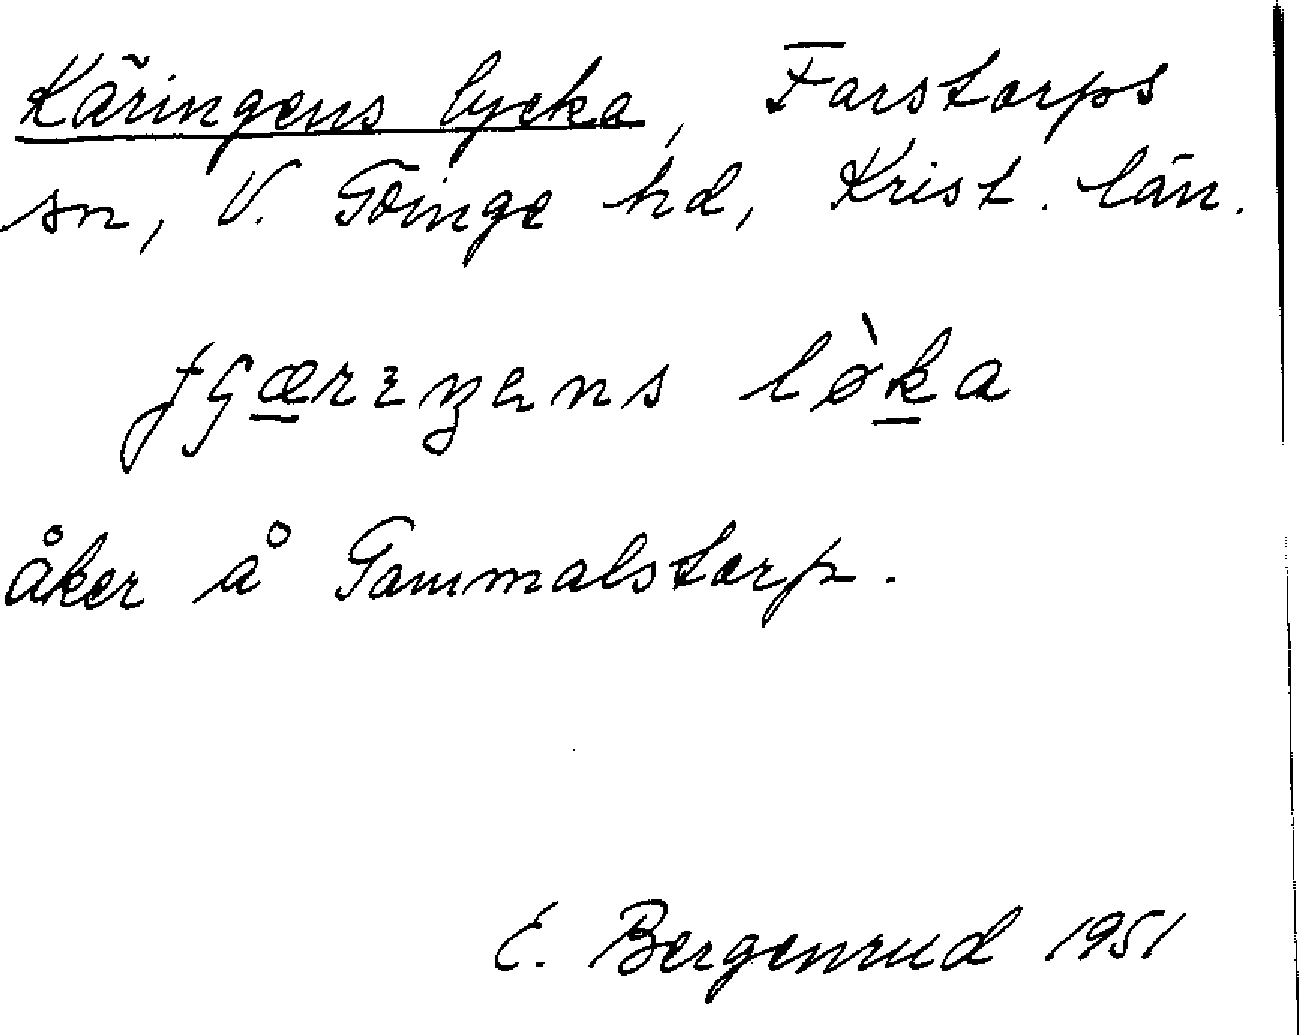 Käringens lycka, Farstorps
sn, V. Göinge hd, Krist. län.
löka
åker å Gammalstorp.
E. Bergenrud 1951